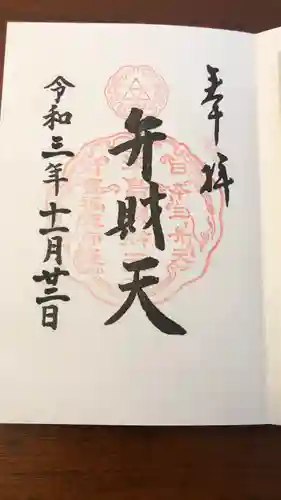 奉拝
弁財天
令和三年十一月廿三日